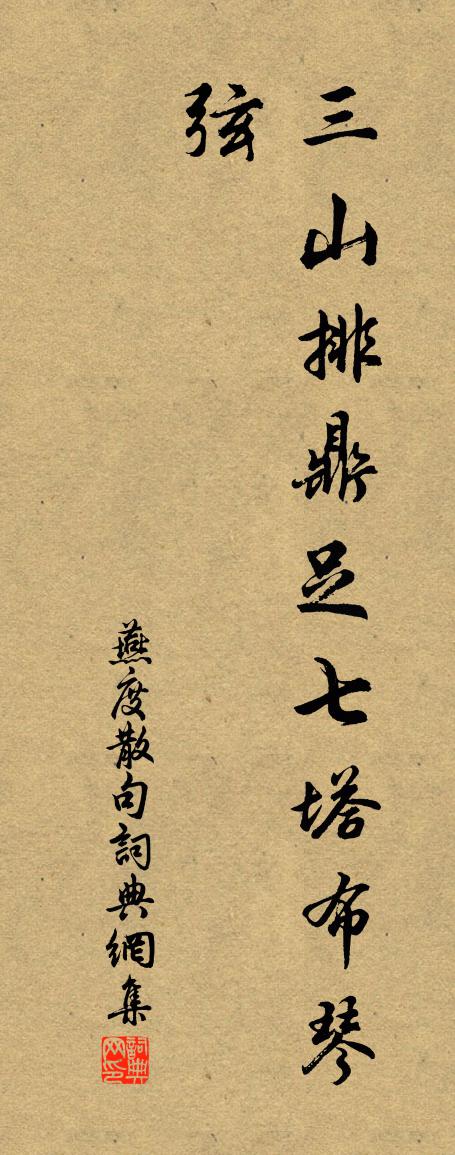 三山排鼎足七塔布琴
弦
燕度散句詞典網集
詞典
网印